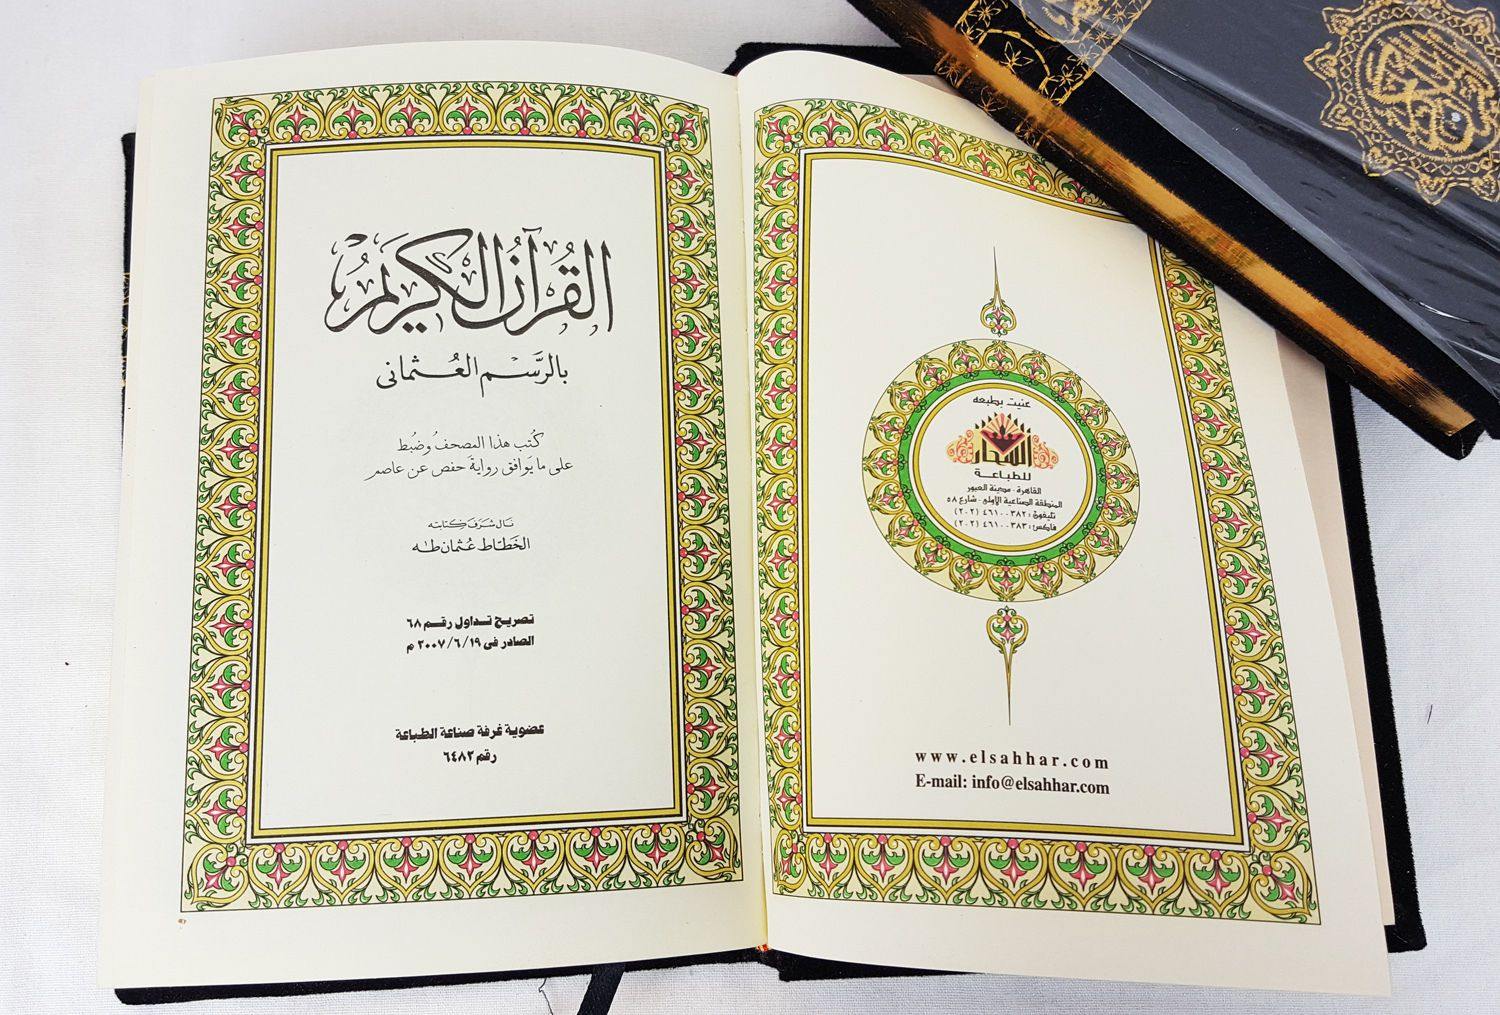 القُرآنُ الكَرِيمُ
بالرَّسم العُثمانى
كُتب هذا المصحفُ وضُبط
على ما يَوافق رواية حفص عن عاصم
نال شرَفَ كتابته
الخَطَّاط عُثمان طه
تصريح تداول رقم ٦٨
الصادر فى ١٩/ ٦/ ٢٠٠٧ م
عضوية غرفة صناعة الطباعة
رقم ٦٤٨٢
عنيت بطبعه
السحار
للطباعة
القاهرة - مدينة العبور
المنطقة الصناعية الأولى - شارع ٥٨
تليفون : ٤٦١٠٠٣٨٢ (٢٠٢)
فاكس : ٤٦١٠٠٣٨٣ (٢٠٢)
www.elsahhar.com
E-mail: info@elsahhar.com